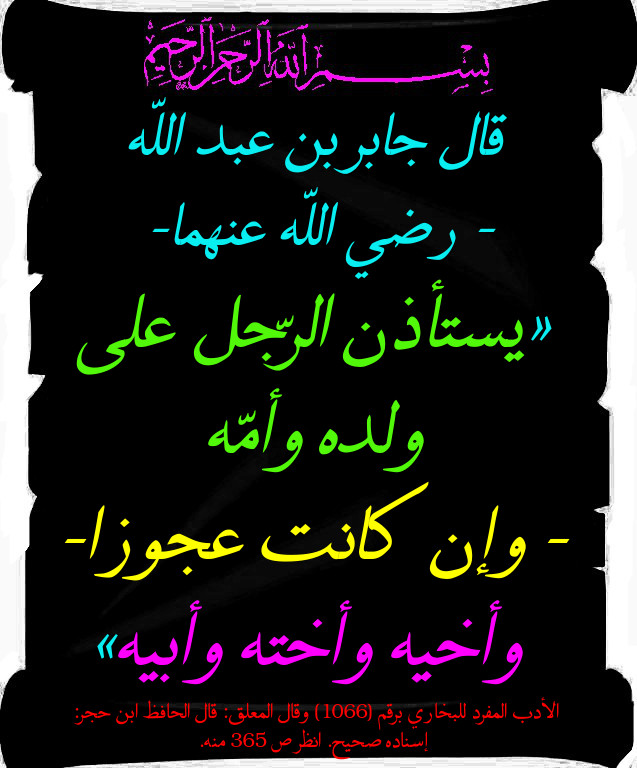 بسم الله الرحمن الرحيم
قال جابر بن عبد اللّه
- رضي اللّه عنهما-
«يستأذن الرّجل على
ولده وأمّه
- وإن كانت عجوزا-
وأخيه وأخته وأبيه»
الأدب المفرد للبخاري برقم (1066) وقال المعلق: قال الحافظ ابن حجر:
إسناده صحيح. انظر ص 365 منه.